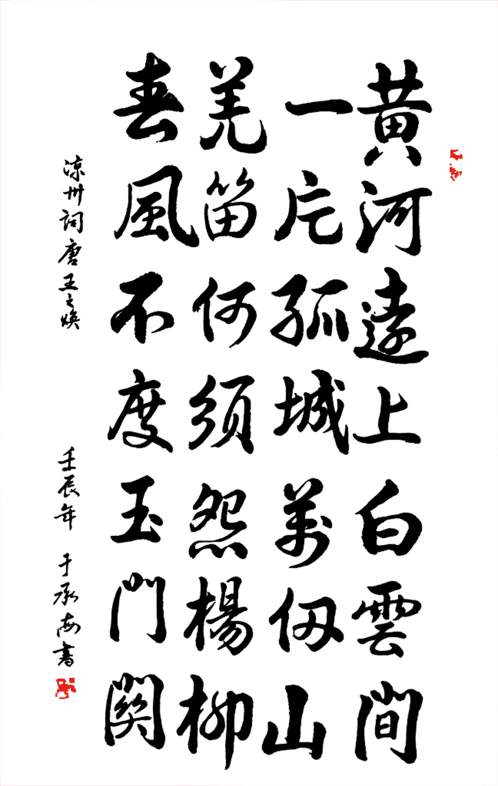 黄河遠上白雲間
一片孤城萬仞山
羌笛何須怨楊柳
春風不度玉門関
涼州詞唐王之煥
壬辰年 于承海書